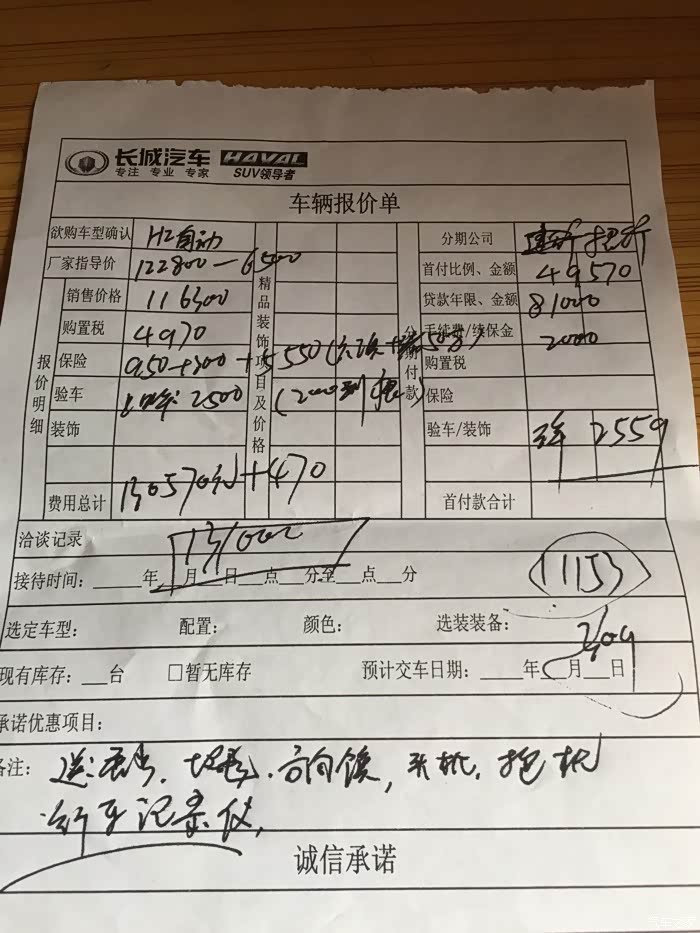 长城汽车 HAVAL
专注 专业 专家 SUV领导者
车辆报价单
欲购车型确认 H2自动 分期公司
厂家指导价 122800-6500 首付比例、金额 49570
销售价格 116300 贷款年限、金额 81000
购置税 4970 手续费/续保金 2000
保险 950+300+5550 购置税
验车 2500 保险
装饰 验车/装饰 2559
费用总计 130570元+470 首付款合计
报价明细
精品装饰项目及价格
期付款
洽谈记录 131000
接待时间:____年__月__日__点__分至__点__分 11153
选定车型: 配置: 颜色: 选装装备:
现有库存:__台 □暂无库存 预计交车日期:____年__月__日
承诺优惠项目:
备注: 送: 方向
行车记录仪,
诚信承诺